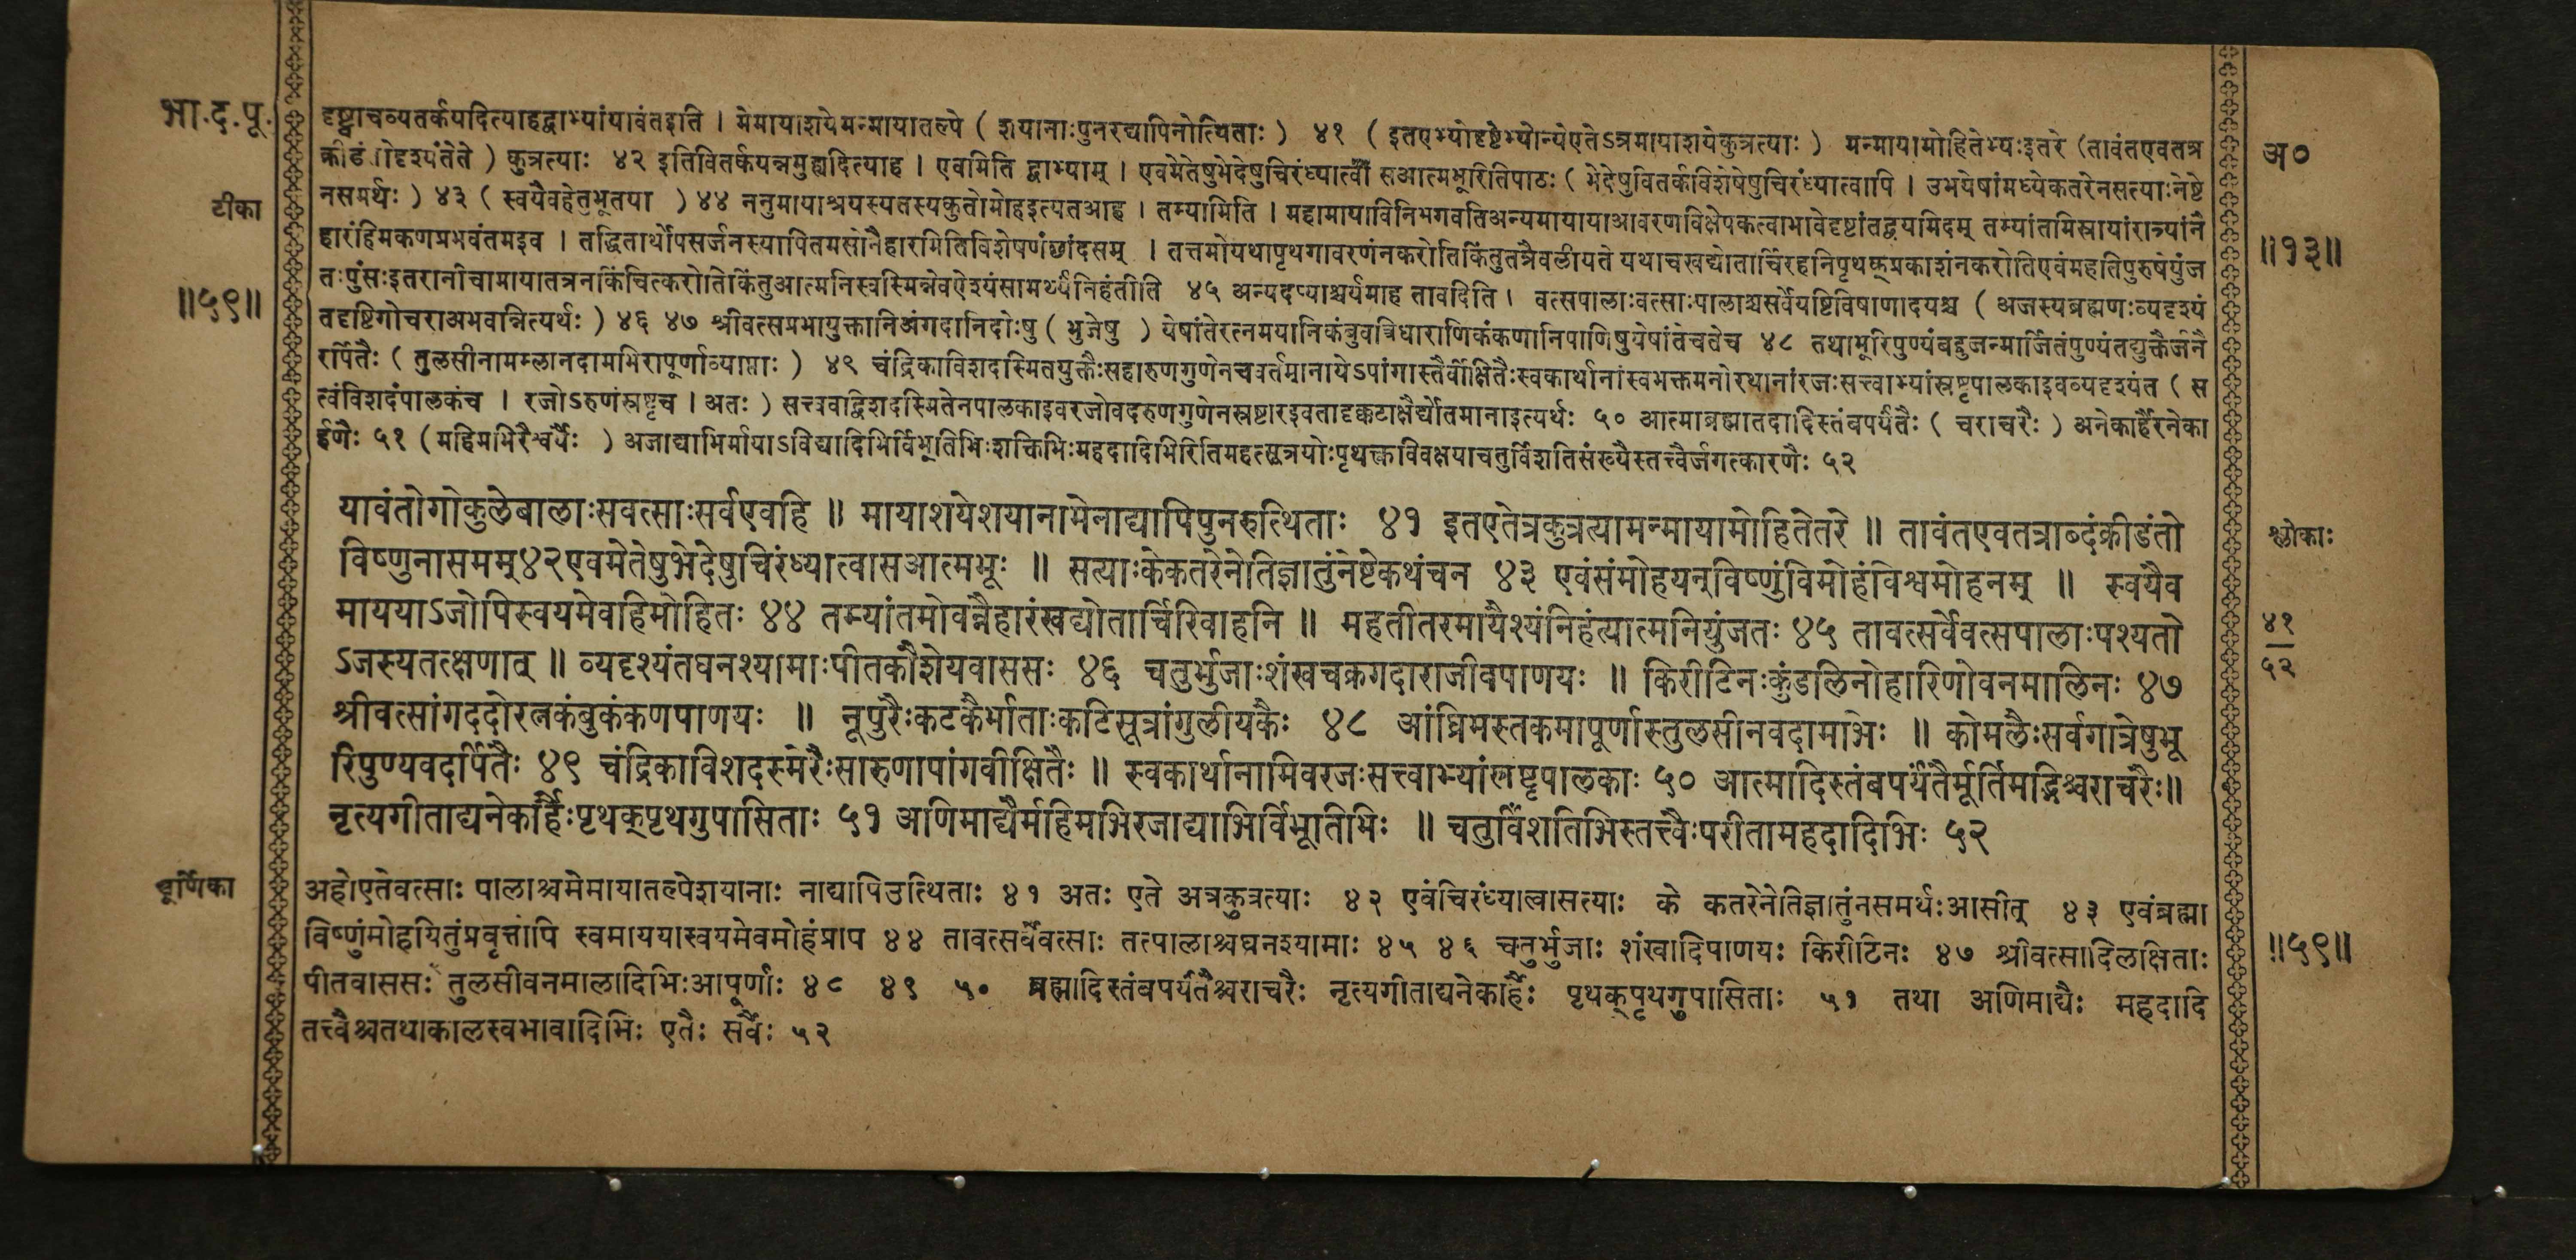 भा.द.पू.
टीका
॥५९॥
दृष्ट्वाचव्यतर्कयदित्याहद्वाभ्यांयावंतइति । मेमायाशयेमन्मायातल्पे ( शयानाःपुनरद्यापिनोत्थिताः ) ४१ ( इतएभ्योदृष्टेभ्योन्येएतेऽत्रमायाशयेकुत्रत्याः ) मन्मायामोहितेभ्यःइतरे (तावंतएवतत्र
क्रीडंतोदृश्यंतेते ) कुत्रत्याः ४२ इतिवितर्कयन्नमुह्यदित्याह । एवमिति द्वाभ्याम् । एवमेतेषुभेदेषुचिरंध्यात्वा सआत्मभूरितिपाठः ( भेदेषुवितर्कविशेषेषुचिरंध्यात्वापि । उभयेषांमध्येकतरेनसत्याःनेष्टे
नसमर्थः ) ४३ ( स्वयैवहेतुभूतया ) ४४ ननुमायाश्रयस्यतस्यकुतोमोहइत्यतआह । तम्यामिति । महामायाविनिभगवतिअन्यमायायाआवरणविक्षेपकत्वाभावेदृष्टांतद्वयमिदम् तम्यांतमिस्रायांरात्र्यांनै
हारंहिमकणप्रभवंतमइव । तद्धितार्थोपसर्जनस्यापितमसोनैहारमितिविशेषणंछांदसम् । तत्तमोयथापृथगावरणंनकरोतिकिंतुतत्रैवलीयते यथाचखद्योतार्चिरहनिपृथक्प्रकाशंनकरोतिएवंमहतिपुरुषेयुंज
तःपुंसःइतरानीचामायातत्रनकिंचित्करोतिकिंतुआत्मनिस्वस्मिन्नेवऐश्यंसामर्थ्यंनिहंतीति ४५ अन्यदप्याश्चर्यमाह तावदिति । वत्सपालाःवत्साःपालाश्चसर्वेयष्टिविषाणादयश्च ( अजस्यब्रह्मणःव्यदृश्यं
तदृष्टिगोचराअभवन्नित्यर्थः ) ४६ ४७ श्रीवत्सप्रभायुक्तानिअंगदानिदोःषु ( भुजेषु ) येषांतेरत्नमयानिकंबुवत्रिधाराणिकंकणानिपाणिषुयेषांतेचतेच ४८ तथाभूरिपुण्यंबहुजन्मार्जितंपुण्यंतद्युक्तैर्जनै
रर्पितैः ( तुलसीनामम्लानदामभिरापूर्णाव्याप्ताः ) ४९ चंद्रिकाविशदस्मितयुक्तैःसहारुणगुणेनचवर्तमानायेऽपांगास्तैर्वीक्षितैःस्वकार्थानांस्वभक्तमनोरथानांरजःसत्त्वाभ्यांस्रष्टृपालकाइवव्यदृश्यंत ( स
त्वंविशदंपालकंच । रजोऽरुणंस्रष्टृच । अतः ) सत्त्ववद्विशदस्मितेनपालकाइवरजोवदरुणगुणेनस्रष्टारइवतादृक्कटाक्षैर्द्योतमानाइत्यर्थः ५० आत्माब्रह्मातदादिस्तंबपर्यंतैः ( चराचरैः ) अनेकार्हैरनेका
र्हणैः ५१ (महिमभिरैश्वर्यैः ) अजाद्याभिर्मायाऽविद्यादिभिर्विभूतिभिःशक्तिभिःमहदादिभिरितिमहत्सूत्रयोःपृथक्त्वविवक्षयाचतुर्विंशतिसंख्यैस्तत्त्वैर्जगत्कारणैः ५२
यावंतोगोकुलेबालाःसवत्साःसर्वएवहि ॥ मायाशयेशयानामेनाद्यापिपुनरुत्थिताः ४१ इतएतेत्रकुत्रत्यामन्मायामोहितेतरे ॥ तावंतएवतत्राब्दंक्रीडंतो
विष्णुनासमम्४२एवमेतेषुभेदेषुचिरंध्यात्वासआत्मभूः ॥ सत्याःकेकतरेनेतिज्ञातुंनेष्टेकथंचन ४३ एवंसंमोहयन्विष्णुंविमोहंविश्वमोहनम् ॥ स्वयैव
माययाऽजोपिस्वयमेवहिमोहितः ४४ तम्यांतमोवन्नैहारंखद्योतार्चिरिवाहनि ॥ महतीतरमायैश्यंनिहंत्यात्मनियुंजतः ४५ तावत्सर्वेवत्सपालाःपश्यतो
ऽजस्यतत्क्षणात् ॥ व्यदृश्यंतघनश्यामाःपीतकौशेयवाससः ४६ चतुर्भुजाःशंखचक्रगदाराजीवपाणयः ॥ किरीटिनःकुंडलिनोहारिणोवनमालिनः ४७
श्रीवत्सांगददोरत्नकंबुकंकणपाणयः ॥ नूपुरैःकटकैर्भाताःकटिसूत्रांगुलीयकैः ४८ आंघ्रिमस्तकमापूर्णास्तुलसीनवदामभिः ॥ कोमलैःसर्वगात्रेषुभू
रिपुण्यवदर्पितैः ४९ चंद्रिकाविशदस्मेरैःसारुणापांगवीक्षितैः ॥ स्वकार्थानामिवरजःसत्त्वाभ्यांस्रष्टृपालकाः ५० आत्मादिस्तंबपर्यंतैर्मूर्तिमद्भिश्चराचरैः॥
नृत्यगीताद्यनेकार्हैःपृथक्पृथगुपासिताः ५१ अणिमाद्यैर्महिमभिरजाद्याभिर्विभूतिभिः ॥ चतुर्विंशतिभिस्तत्त्वैःपरीतामहदादिभिः ५२
चूर्णिका
अहोएतेवत्साः पालाश्चमेमायातल्पेशयानाः नाद्यापिउत्थिताः ४१ अतः एते अत्रकुत्रत्याः ४२ एवंचिरंध्यात्वासत्याः के कतरेनेतिज्ञातुंनसमर्थःआसीत् ४३ एवंब्रह्मा
विष्णुंमोहयितुंप्रवृत्तोपि स्वमाययास्वयमेवमोहंप्राप ४४ तावत्सर्वेवत्साः तत्पालाश्चघनश्यामाः ४५ ४६ चतुर्भुजाः शंखादिपाणयः किरीटिनः ४७ श्रीवत्सादिलक्षिताः
पीतवाससः तुलसीवनमालादिभिःआपूर्णाः ४८ ४९ ५० ब्रह्मादिस्तंबपर्यंतैश्चराचरैः नृत्यगीताद्यनेकार्हैः पृथक्पृथगुपासिताः ५१ तथा अणिमाद्यैः महदादि
तत्त्वैश्चतथाकालस्वभावादिभिः एतैः सर्वैः ५२
अ०
॥१३॥
श्लोकाः
४१
५२
॥५९॥